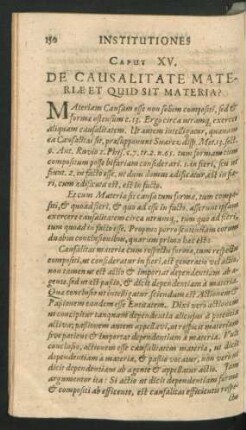 150 INSTITUTIONES
CAPUT XV.
DE CAUSALITATE MATE-
RIÆ ET QUID SIT MATERIA?
MAteriam Causam esse non solùm compositi, sed &
forma ostensum c. 13. Ergo circa utramq, exercet
aliquam causalitatem. Ut autem intelligatur, quænam
ea Causalitas sit, præsupponunt Suarez disp. Met. 13. sect.
6. Ant. Ruvio 2. Phys. c. 7. tr. 2. n. 61. tum formam tum
compositum posse bifariam considerari. 1. in fieri, seu ut
sunt. 2. in facto esse, ut dum domus ædificatur est in fi-
eri, cum ædificata est, est in facto.
Et cum Materia sit causa tum formæ, tum compo-
siti, & quoad fieri, & quoad esse in facto,
exercere causalitatem circa utrumq, tum quoad fieri,
tum quoad in facto esse. Propter
duabus conclusionibus, quarum prima
Causalitas materiæ cum respectu formæ, tum respectu
compositi, ut consideratur in fieri, est
non tamen ut est actio & importat dependentiam ab a-
gente sed ut est passio, & dicit dependentiam à materia.
Que conclusio ut intelligatur sciendum est Actionem &
Passionem eandem esse Entitatem. Dici vero actionem
ut concipitur tanquam dependentia alicujus à potentia
activa; passionem autem appellari, ut respicit materiam
sive patiens & importat dependentiam à materia.
conclusio, actionem esse causalitatem materiæ, ut dicit
dependentiam à materia, & passio vocatur, non verò ut
dicit dependentiam ab agente & appellatur actio.
argumentor ita: Si actio ut dicit dependentiam formæ
& compositi ab efficiente, est causalitas efficientis respec-